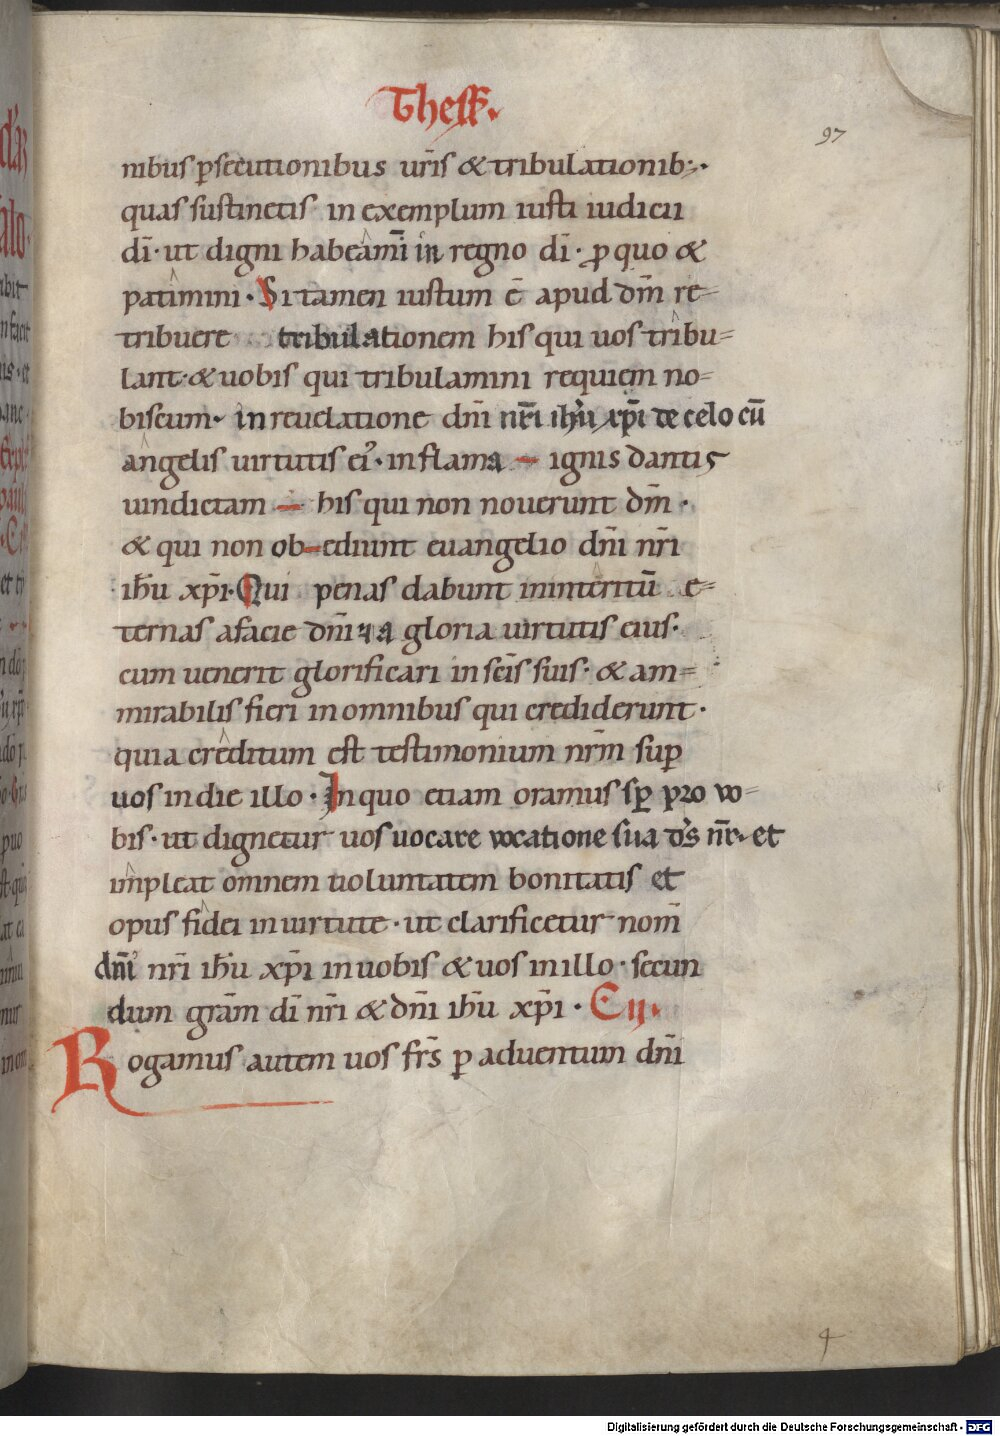 Thess.
97
nibus p̄secutionibus ur̄is & tribulationib;·
quas sustinetis in exemplum iusti iudicii
dī· ut digni habeamī in regno dī· ꝓ quo &
patimini· Si tamen iustum ē apud dm̄ re=
tribuere tribulationem his qui uos tribu=
lant· & uobis qui tribulamini requiem no=
biscum· in reuelatione dnī nr̄i ihū xp̄i de celo cū
angelis uirtutis ei᾽· in flama — ignis dantis
uindictam — his qui non nouerunt dm̄·
& qui non ob–ediunt euangelio dn̄i nr̄i
ihū xp̄i· Qui penas dabunt in interitū e=
ternas a facie dnī & a gloria uirtutis eius·
cum uenerit glorificari in sc̄is suis· & am=
mirabilis fieri in omnibus qui crediderunt·
quia creditum est testimonium nr̄m sup̄
uos in die illo· In quo etiam oramus sp̄ pro vo=
bis· ut dignetur uos uocare vocatione sua ds̄ nr̄· et
impleat omnem uoluntatem bonitatis et
opus fidei in uirtute· ut clarificetur nom̄
dnī nr̄i ihū xp̄i in uobis & uos in illo· secun
dum grām dī nr̄i & dn̄i ihū xp̄i· C II·
Rogamus autem uos frs̄ p̄ aduentum dn̄i
Digitalisierung gefördert durch die Deutsche Forschungsgemeinschaft - DFG